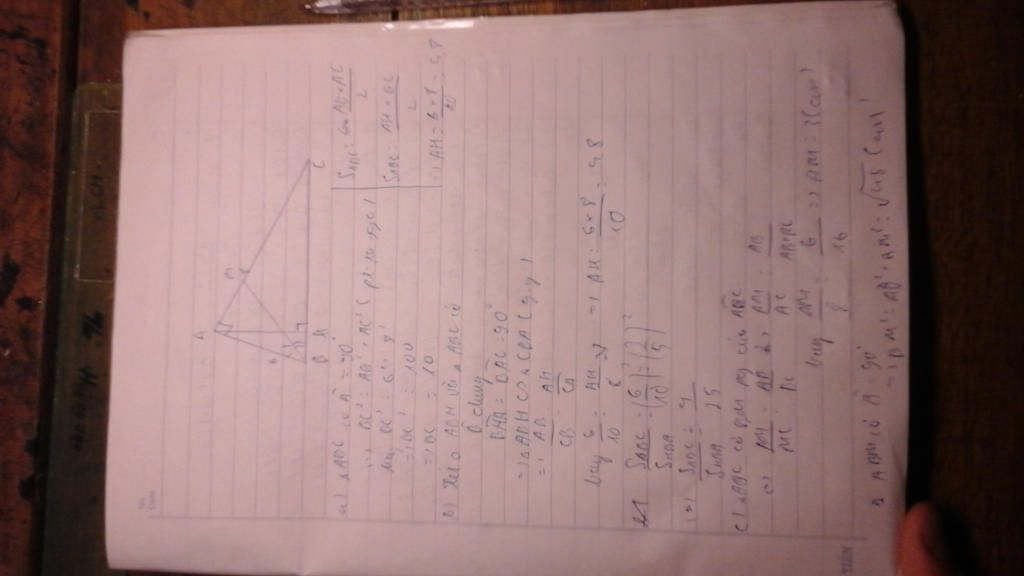 A
M
B H C
a) △ABC có Â = 90°
=> BC² = AB² + AC² (pi-ta-go)
hay BC² = 6² + 8²
=> BC² = 100
=> BC = 10
SABC = AB × AC / 2
SABC = AH × BC / 2
=> AH = 6 × 8 / 10 = 4,8
b) Xét △ABH và △ABC có
B chung
BHA = BAC = 90°
=> △ABH ∽ △CBA (g.g)
=> AB / CB = AH / CA
hay 6 / 10 = AH / 8 => AH = 6 × 8 / 10 = 4,8
SABC / SHBA = (6 / 10)² = (3 / 5)²
=> SABC / SHBA = 9 / 25
c) △ABC có BM
=> AM / MC = AB / BC => AM / AC = AB / AB+BC
hay AM / 8 = 6 / 16 => AM = 3 (cm)
△ABM có Â = 90°
=> BM² = AB² + AM² = √45 (cm)